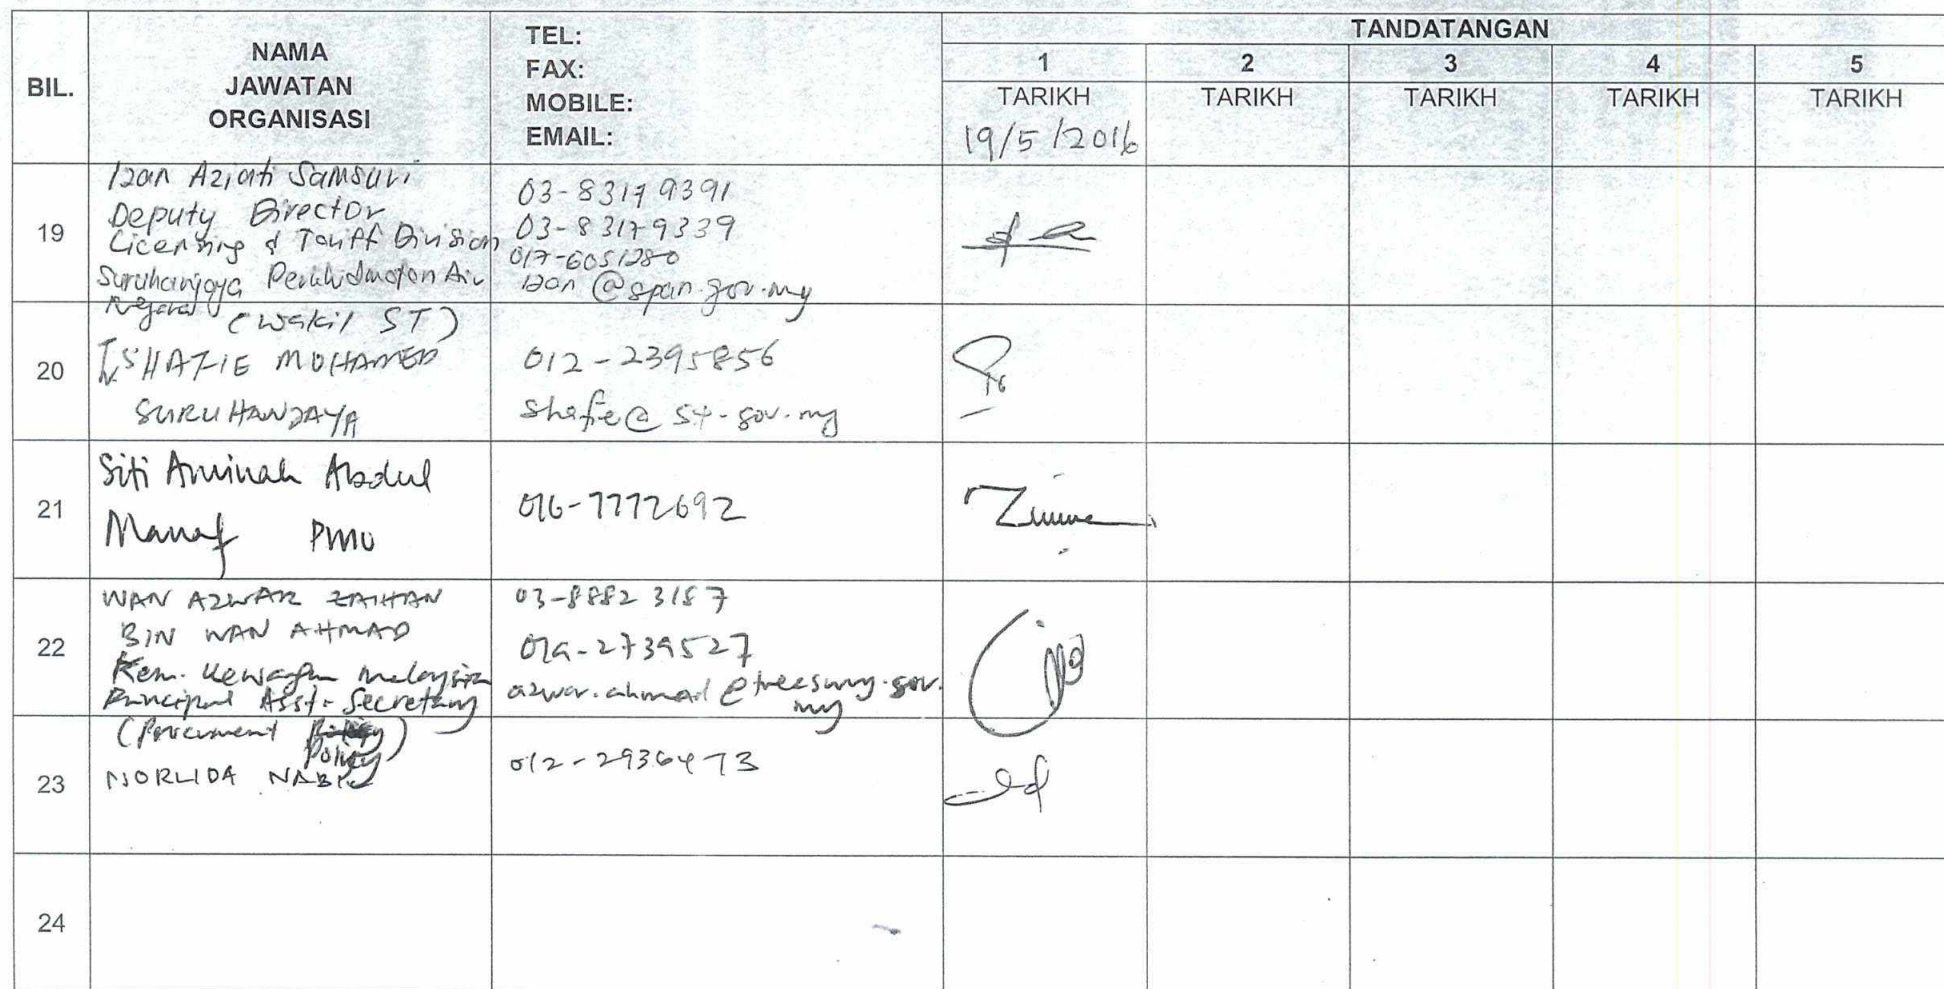 BIL.
NAMA
JAWATAN
ORGANISASI
TEL:
FAX:
MOBILE:
EMAIL:
TANDATANGAN
1 2 3 4 5
TARIKH TARIKH TARIKH TARIKH TARIKH
19/5/2016
19
Izan Aziati Samsuri
Deputy Director
Licensing & Tariff Division
Suruhanjaya Perkhidmatan Air
Negara
03-8317 9391
03-8317 9339
017-6051280
izan@span.gov.my
20
(Wakil ST)
SHAFIE MOHAMED
SURUHANJAYA
012-2395856
shafie@st.gov.my
21
Siti Aminah Abdul
Manaf PMU
016-7772692
22
WAN AZWAR ZAIHAN
BIN WAN AHMAD
Kem. Kewangan Malaysia
Principal Asst. Secretary
(Procurement
Policy)
03-8882 3187
019-2739527
azwar.ahmad@treasury.gov.
my
23
NORLIDA
012-2936473
24